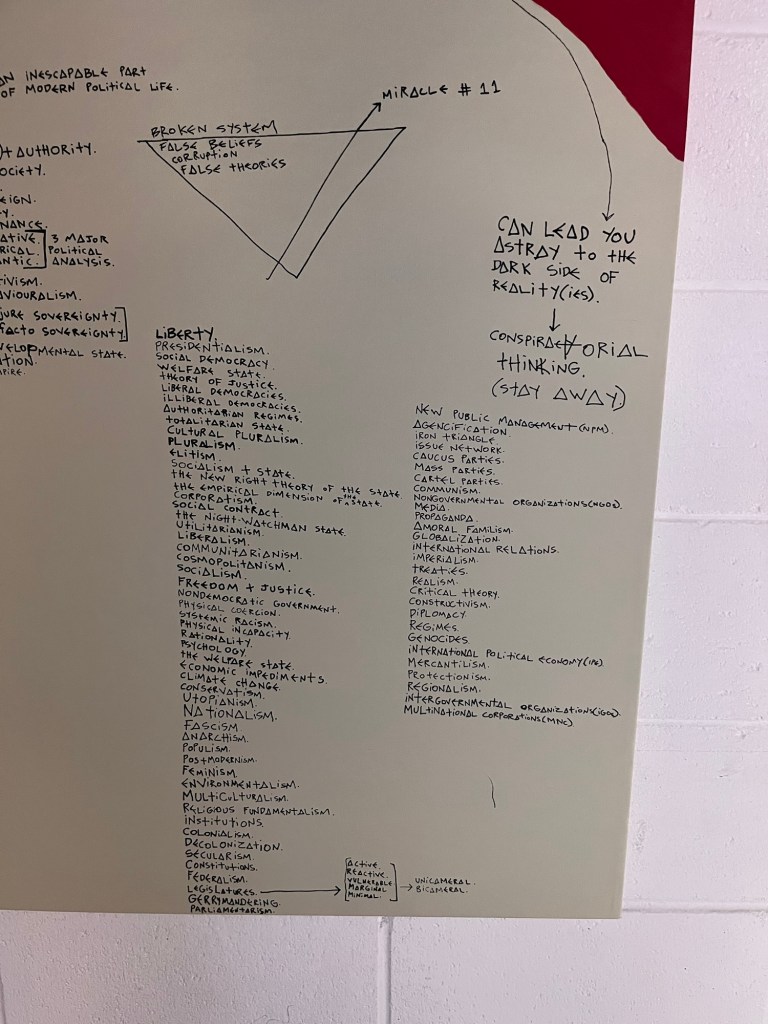 AN INESCAPABLE PART
OF MODERN POLITICAL LIFE.
MIRACLE # 11
BROKEN SYSTEM
FALSE BELIEFS
CORRUPTION
FALSE THEORIES
+ AUTHORITY.
OCIETY.
EIGN.
Y.
NANCE.
ATIVE.
RICAL.
ANTIC.
3 MAJOR
POLITICAL
ANALYSIS.
TIVISM.
AVIOURALISM.
JURE SOVEREIGNTY.
FACTO SOVEREIGNTY.
VELOPMENTAL STATE.
ATION.
MPIRE.
CAN LEAD YOU
ASTRAY TO THE
DARK SIDE OF
REALITY(IES).
THINKING.
(STAY AWAY)
LIBERTY.
PRESIDENTIALISM.
SOCIAL DEMOCRACY.
WELFARE STATE.
THEORY OF JUSTICE.
LIBERAL DEMOCRACIES.
ILLIBERAL DEMOCRACIES.
AUTHORITARIAN REGIMES.
TOTALITARIAN STATE.
CULTURAL PLURALISM.
PLURALISM.
ELITISM.
SOCIALISM + STATE.
THE NEW RIGHT THEORY OF THE STATE.
THE EMPIRICAL DIMENSION OF THE STATE.
CORPORATISM.
SOCIAL CONTRACT.
THE NIGHT-WATCHMAN STATE.
UTILITARIANISM.
LIBERALISM.
COMMUNITARIANISM.
COSMOPOLITANISM.
SOCIALISM.
FREEDOM + JUSTICE.
NONDEMOCRATIC GOVERNMENT.
PHYSICAL COERCION.
SYSTEMIC RACISM.
PHYSICAL INCAPACITY.
RATIONALITY.
PSYCHOLOGY.
THE WELFARE STATE.
ECONOMIC IMPEDIMENTS.
CLIMATE CHANGE.
CONSERVATISM.
UTOPIANISM.
NATIONALISM.
FASCISM
ANARCHISM.
POPULISM.
POSTMODERNISM.
FEMINISM.
ENVIRONMENTALISM.
MULTICULTURALISM.
RELIGIOUS FUNDAMENTALISM.
INSTITUTIONS.
COLONIALISM.
DECOLONIZATION.
SECULARISM.
CONSTITUTIONS.
FEDERALISM.
LEGISLATURES.
GERRYMANDERING.
PARLIAMENTARISM.
ACTIVE.
REACTIVE.
VULNERABLE
MARGINAL
MINIMAL.
UNICAMERAL.
BICAMERAL.
NEW PUBLIC MANAGEMENT(NPM).
AGENCIFICATION.
IRON TRIANGLE.
ISSUE NETWORK.
CAUCUS PARTIES.
MASS PARTIES.
CARTEL PARTIES.
COMMUNISM.
NONGOVERNMENTAL ORGANIZATIONS(NGOs).
MEDIA.
PROPAGANDA.
AMORAL FAMILISM.
GLOBALIZATION.
INTERNATIONAL RELATIONS.
IMPERIALISM.
TREATIES.
REALISM.
CRITICAL THEORY.
CONSTRUCTIVISM.
DIPLOMACY.
REGIMES.
GENOCIDES.
INTERNATIONAL POLITICAL ECONOMY(IPE).
MERCANTILISM.
PROTECTIONISM.
REGIONALISM.
INTERGOVERNMENTAL ORGANIZATIONS(IGOs).
MULTINATIONAL CORPORATIONS(MNC).